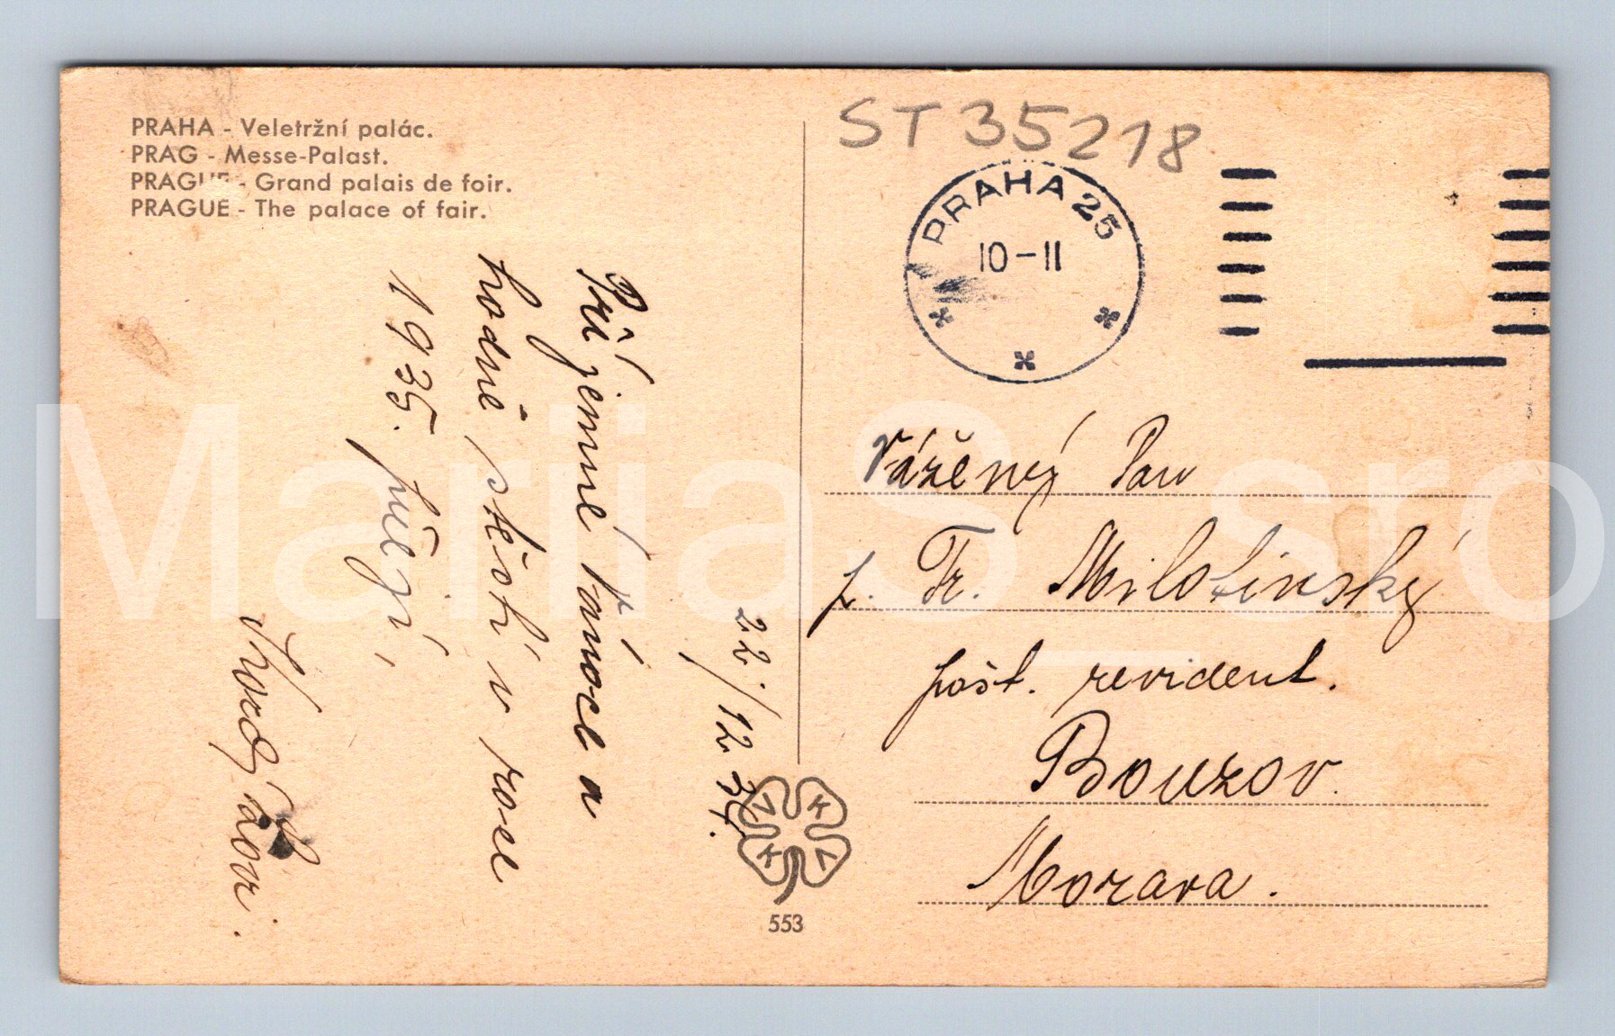 PRAHA - Veletržní palác.
PRAG - Messe-Palast.
PRAGUE - Grand palais de foir.
PRAGUE - The palace of fair.
ST 35218
PRAHA 25
10-11
22/12 34.
Příjemné vánoce a
hodně štěstí v roce
1935. přejí,
Vážený Pan
p. Fr. Milotinský
pošt. revident.
Bouzov.
Morava.
V K
K V
553
MariiaS_sro